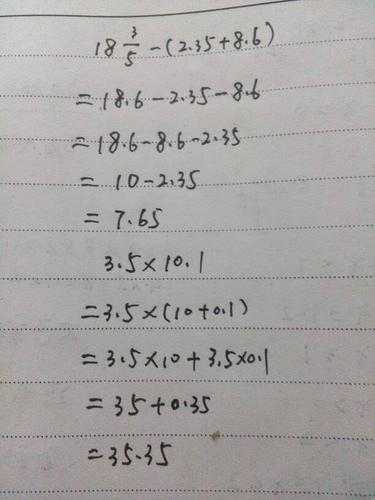 18 3/5 -(2.35+8.6)
=18.6-2.35-8.6
=18.6-8.6-2.35
= 10-2.35
= 7.65
3.5×10.1
=3.5×(10+0.1)
=3.5×10+3.5×0.1
=35+0.35
=35.35